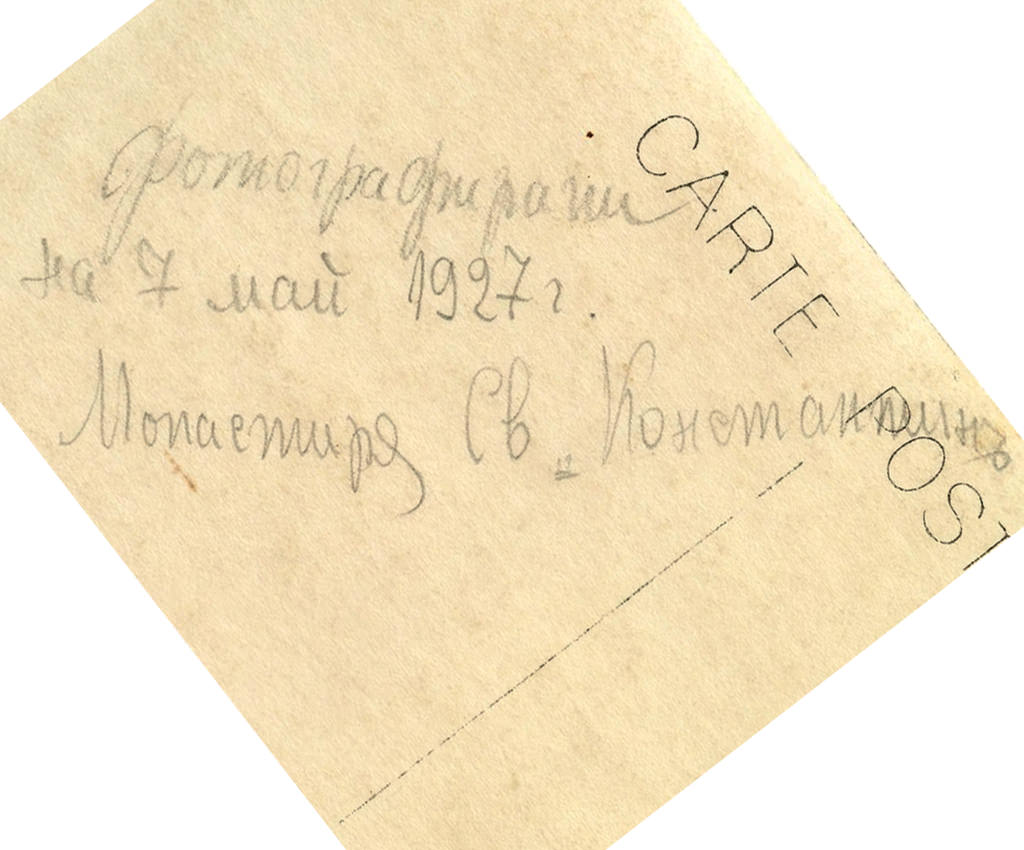 Фотографирани
на 7 май 1927 г.
Монастиря Св. „Константинъ
CARTE POST